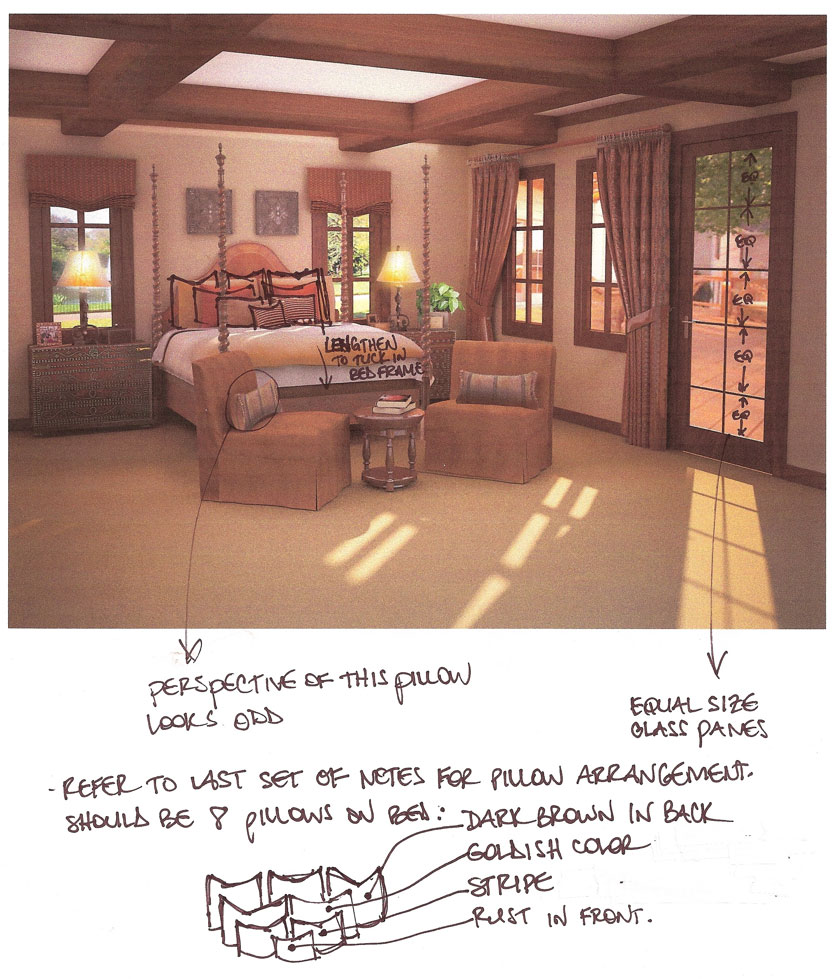 EQ
EQ
EQ
EQ
EQ
LENGTHEN
TO TUCK IN
BED FRAME
PERSPECTIVE OF THIS PILLOW
LOOKS ODD
EQUAL SIZE
GLASS PANES
- REFER TO LAST SET OF NOTES FOR PILLOW ARRANGEMENT.
SHOULD BE 8 PILLOWS ON BED:
DARK BROWN IN BACK
GOLDISH COLOR
STRIPE
RUST IN FRONT.